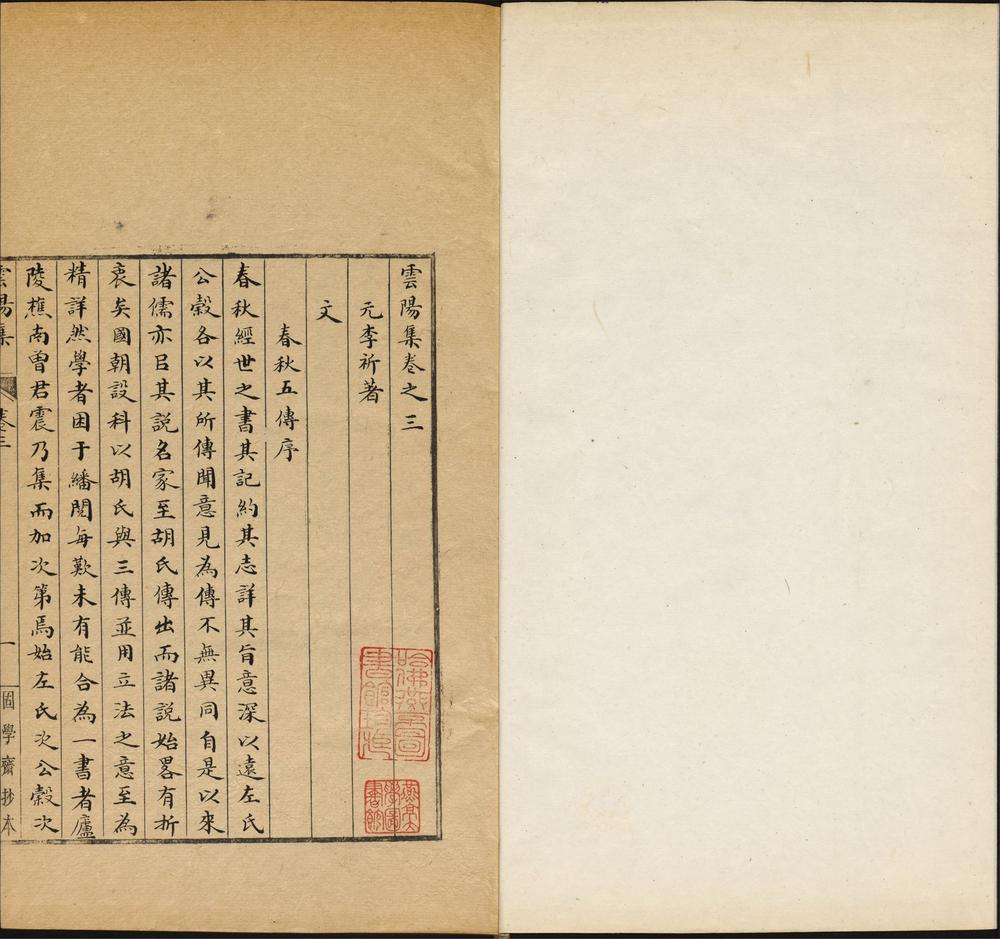 雲陽集卷之三
元李祈著
文
春秋五傳序
春秋經世之書其記約其志詳其旨意深以遠左氏
公穀各以其所傳聞意見為傳不無異同自是以來
諸儒亦㠯其說名家至胡氏傳出而諸說始畧有折
衷矣國朝設科以胡氏與三傳並用立法之意至為
精詳然學者困于繙閱每歎未有能合為一書者廬
陵樵南曾君震乃集而加次第焉始左氏次公穀次
雲陽集 卷三 一 固學齋抄本
哈佛燕京圖書館珍藏
燕京大學圖書館